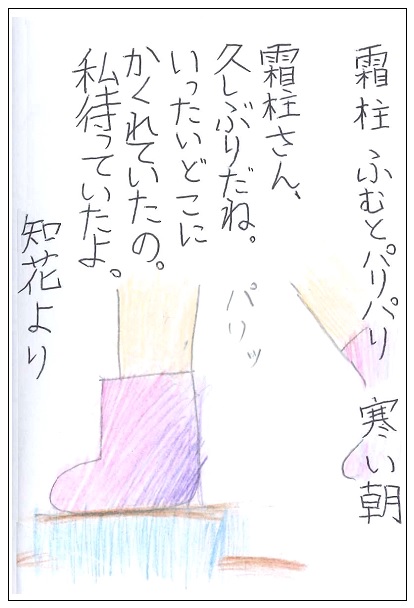 霜柱 ふむとパリパリ 寒い朝
霜柱さん、
久しぶりだね。
いったいどこに
かくれていたの。
私待っていたよ。
知花より
パリッ